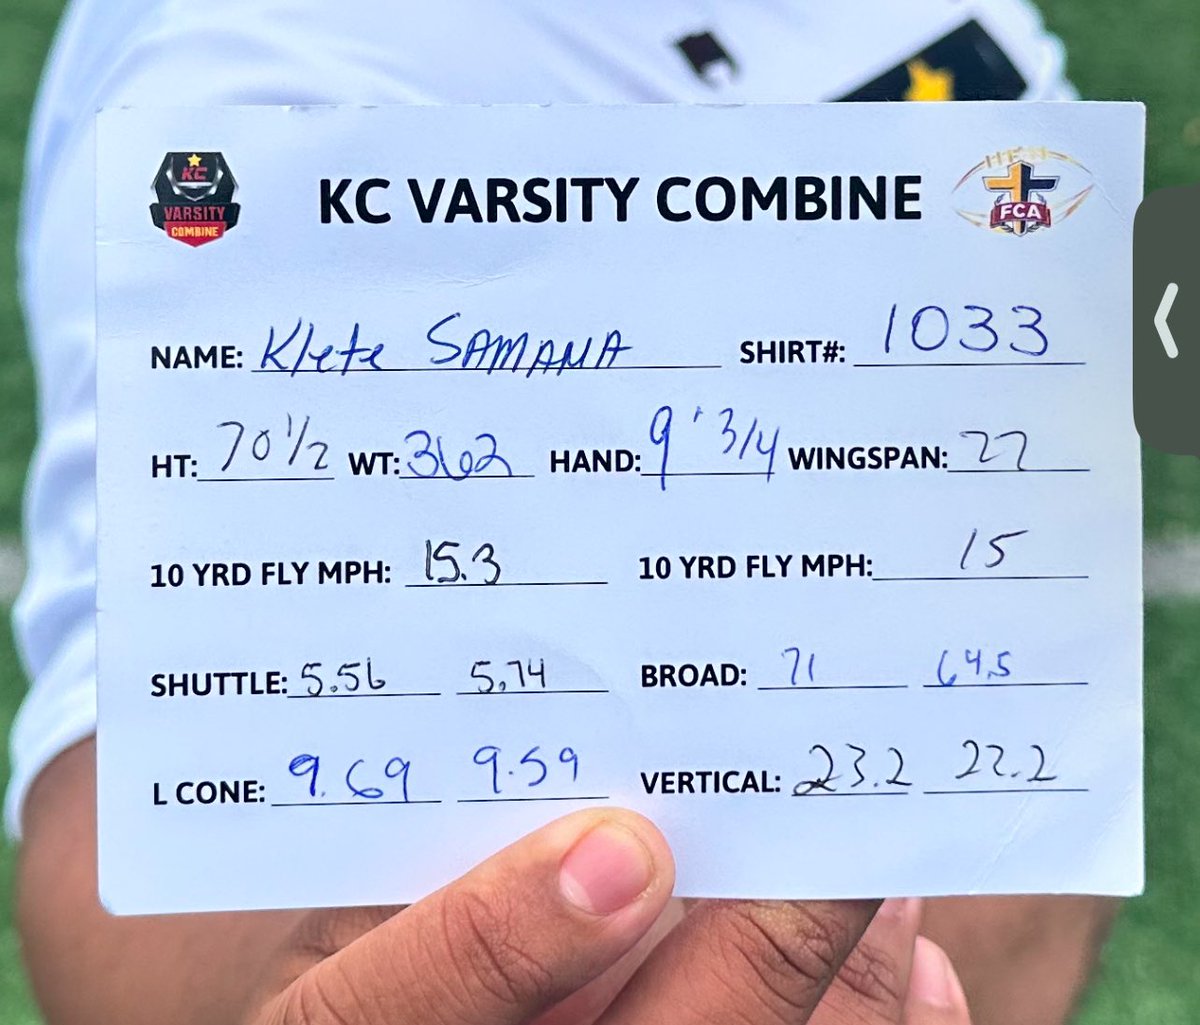 KC VARSITY COMBINE
KC VARSITY COMBINE
FCA
NAME: Klete SAMANA SHIRT#: 1033
HT: 70 1/2 WT: 362 HAND: 9' 3/4 WINGSPAN: 77
10 YRD FLY MPH: 15.3 10 YRD FLY MPH: 15
SHUTTLE: 5.56 5.74 BROAD: 71 64.5
L CONE: 9.69 9.59 VERTICAL: 23.2 22.2